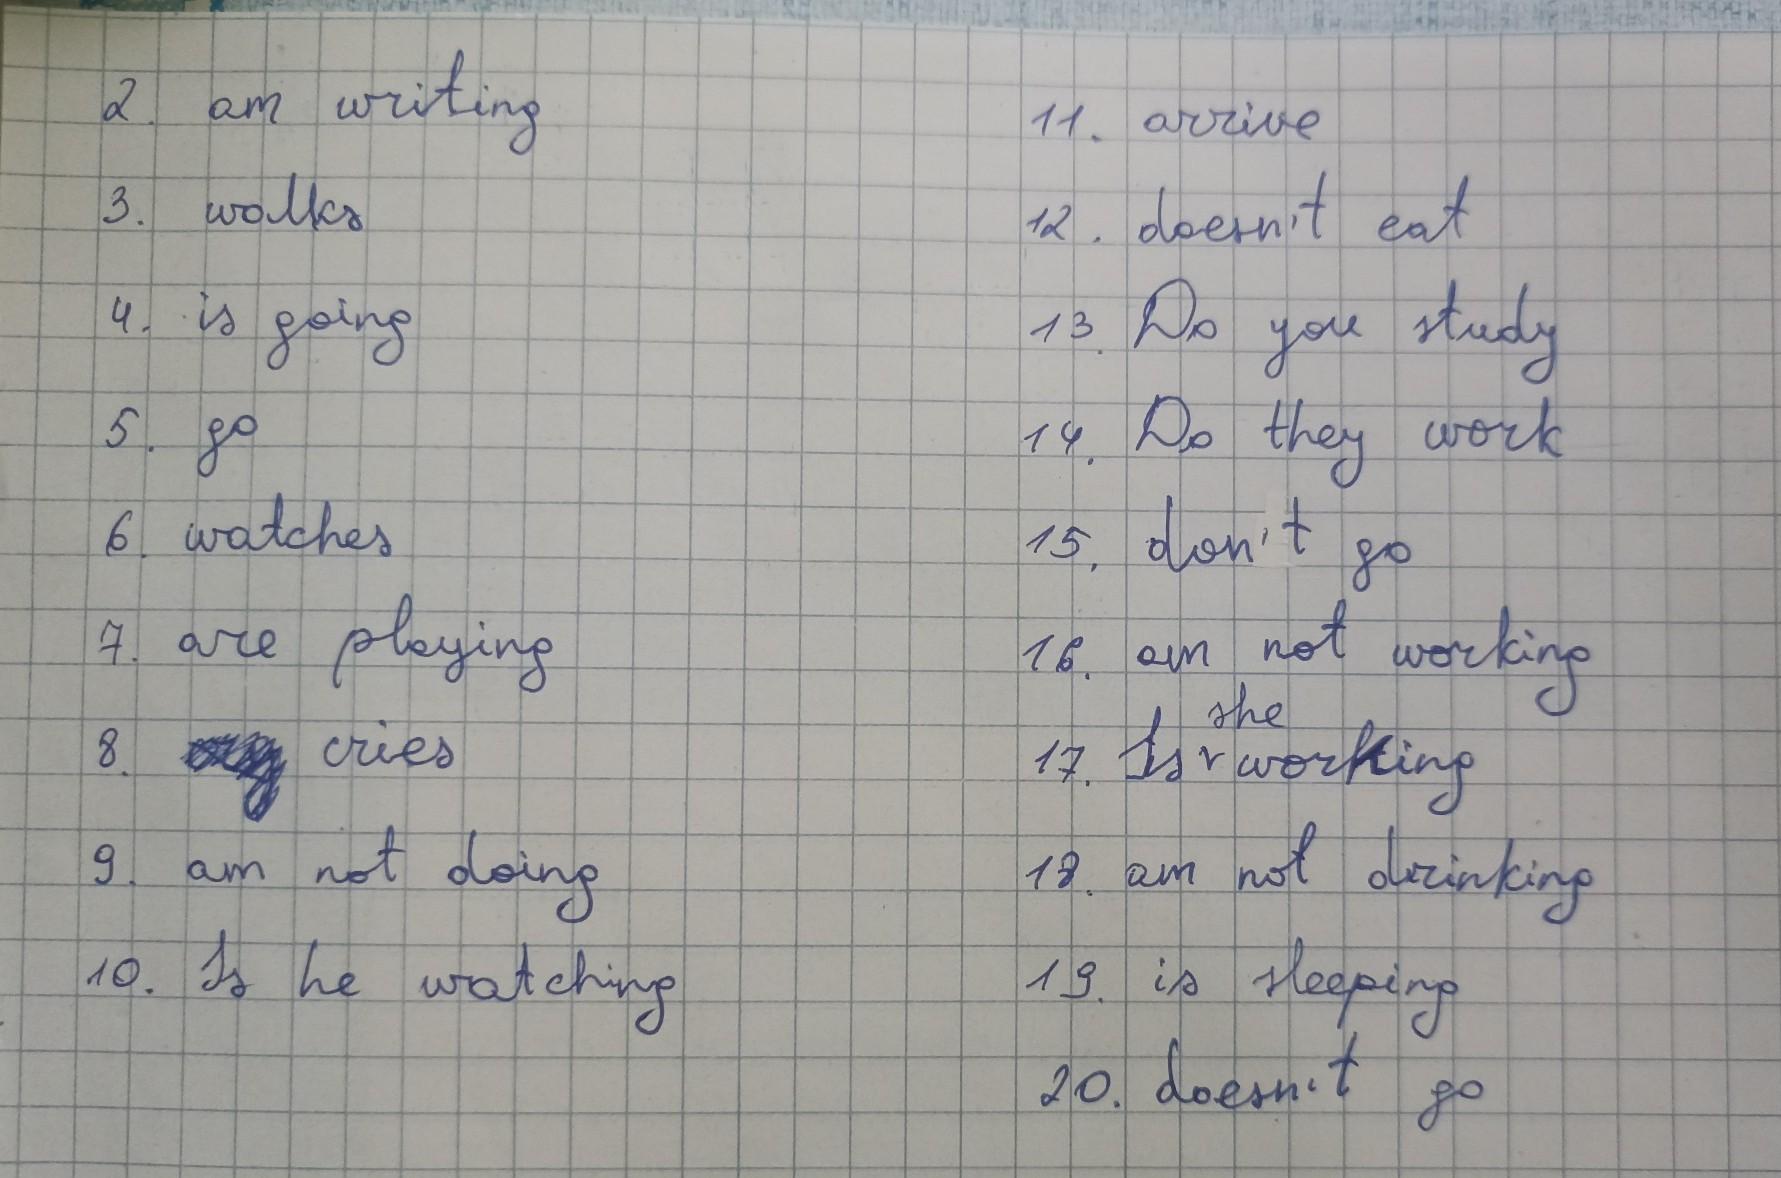 2. am writing
3. walks
4. is going
5. go
6. watches
7. are playing
8. cries
9. am not doing
10. Is he watching
11. arrive
12. doesn't eat
13. Do you study
14. Do they work
15. don't go
16. am not working
17. Is she working
18. am not drinking
19. is sleeping
20. doesn't go